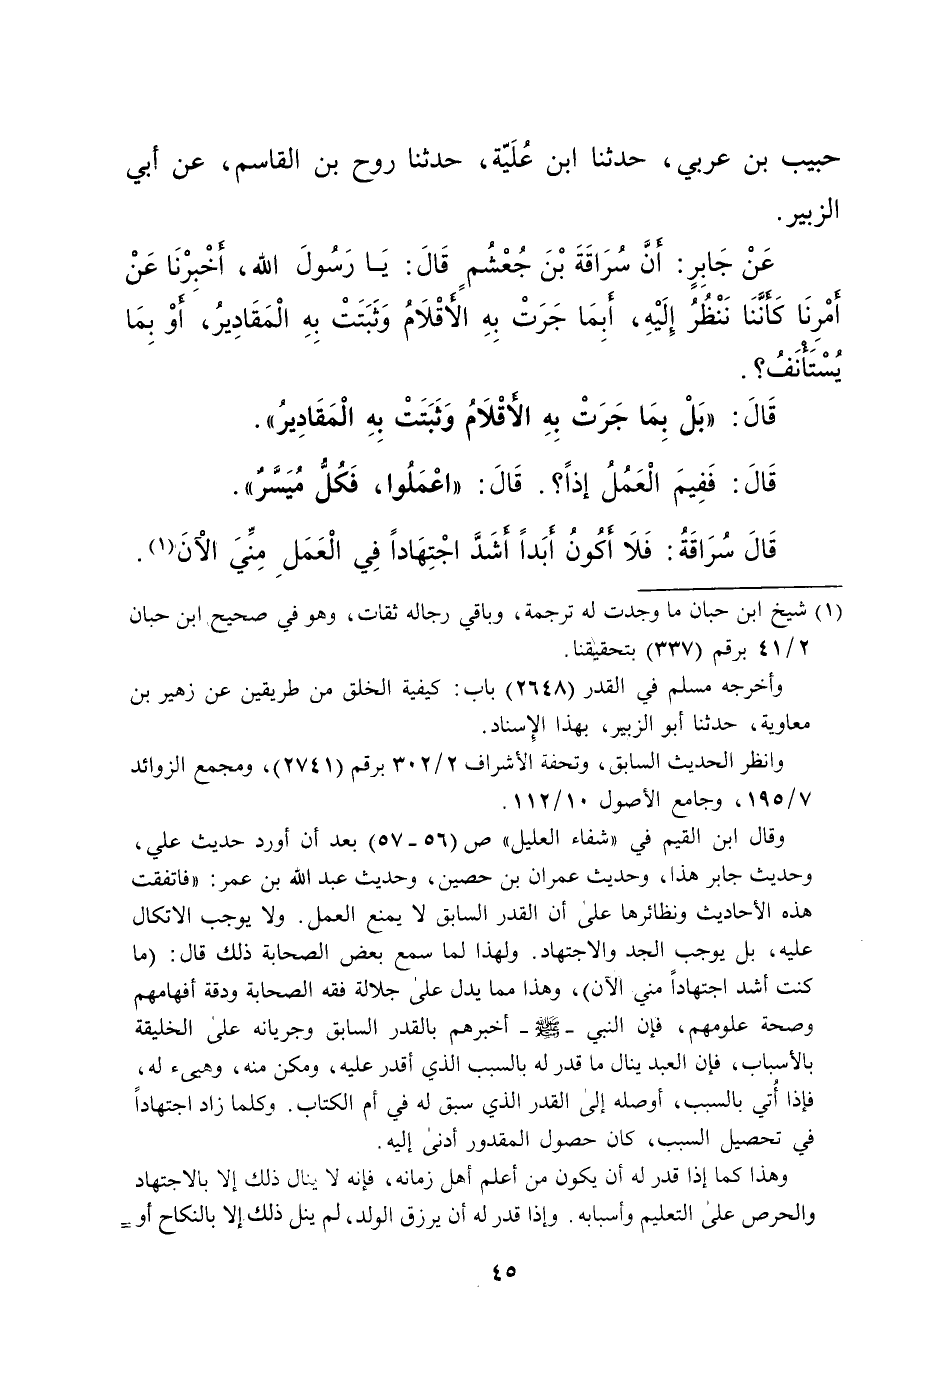 حبيب بن عربي، حدثنا ابن عُلَيّة، حدثنا روح بن القاسم، عن أبي
الزبير.
عَنْ جَابِرٍ: أَنَّ سُرَاقَةَ بْنَ جُعْشُمٍ قَالَ: يَا رَسُولَ الله، أَخْبِرْنَا عَنْ
أَمْرِنَا كَأَنَّنَا نَنْظُرُ إِلَيْهِ، أَبِمَا جَرَتْ بِهِ الأَقْلَامُ وَثَبَتَتْ بِهِ الْمَقَادِيرُ، أَوْ بِمَا
يُسْتَأْنَفُ؟.
قَالَ: «بَلْ بِمَا جَرَتْ بِهِ الأَقْلَامُ وَثَبَتَتْ بِهِ الْمَقَادِيرُ».
قَالَ: فَفِيمَ الْعَمَلُ إِذاً؟. قَالَ: «اعْمَلُوا، فَكُلٌّ مُيَسَّرٌ».
قَالَ سُرَاقَةُ: فَلَا أَكُونُ أَبَداً أَشَدَّ اجْتِهَاداً فِي الْعَمَلِ مِنِّيَ الْآنَ(١).
(١) شيخ ابن حبان ما وجدت له ترجمة، وباقي رجاله ثقات، وهو في صحيح ابن حبان
٤١/٢ برقم (٣٣٧) بتحقيقنا.
وأخرجه مسلم في القدر (٢٦٤٨) باب: كيفية الخلق من طريقين عن زهير بن
معاوية، حدثنا أبو الزبير، بهذا الإسناد.
وانظر الحديث السابق، وتحفة الأشراف ٣٠٢/٢ برقم (٢٧٤١)، ومجمع الزوائد
١٩٥/٧، وجامع الأصول ١١٢/١٠.
وقال ابن القيم في «شفاء العليل» ص (٥٦ - ٥٧) بعد أن أورد حديث علي،
وحديث جابر هذا، وحديث عمران بن حصين، وحديث عبد الله بن عمر: «فاتفقت
هذه الأحاديث ونظائرها علىٰ أن القدر السابق لا يمنع العمل. ولا يوجب الاتكال
عليه، بل يوجب الجد والاجتهاد. ولهذا لما سمع بعض الصحابة ذلك قال: (ما
كنت أشد اجتهاداً مني الآن)، وهذا مما يدل علىٰ جلالة فقه الصحابة ودقة أفهامهم
وصحة علومهم، فإن النبي - ﷺ - أخبرهم بالقدر السابق وجريانه علىٰ الخليقة
بالأسباب، فإن العبد ينال ما قدر له بالسبب الذي أقدر عليه، ومكن منه، وهيىء له،
فإذا أُتي بالسبب، أوصله إلىٰ القدر الذي سبق له في أم الكتاب. وكلما زاد اجتهاداً
في تحصيل السبب، كان حصول المقدور أدنىٰ إليه.
وهذا كما إذا قدر له أن يكون من أعلم أهل زمانه، فإنه لا ينال ذلك إلا بالاجتهاد
والحرص علىٰ التعليم وأسبابه. وإذا قدر له أن يرزق الولد، لم ينل ذلك إلا بالنكاح أو =
٤٥